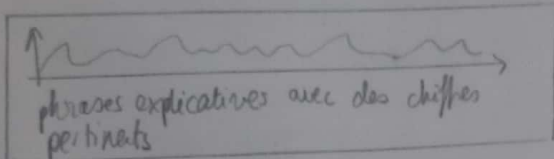 phrases explicatives avec des chiffres
pertinents